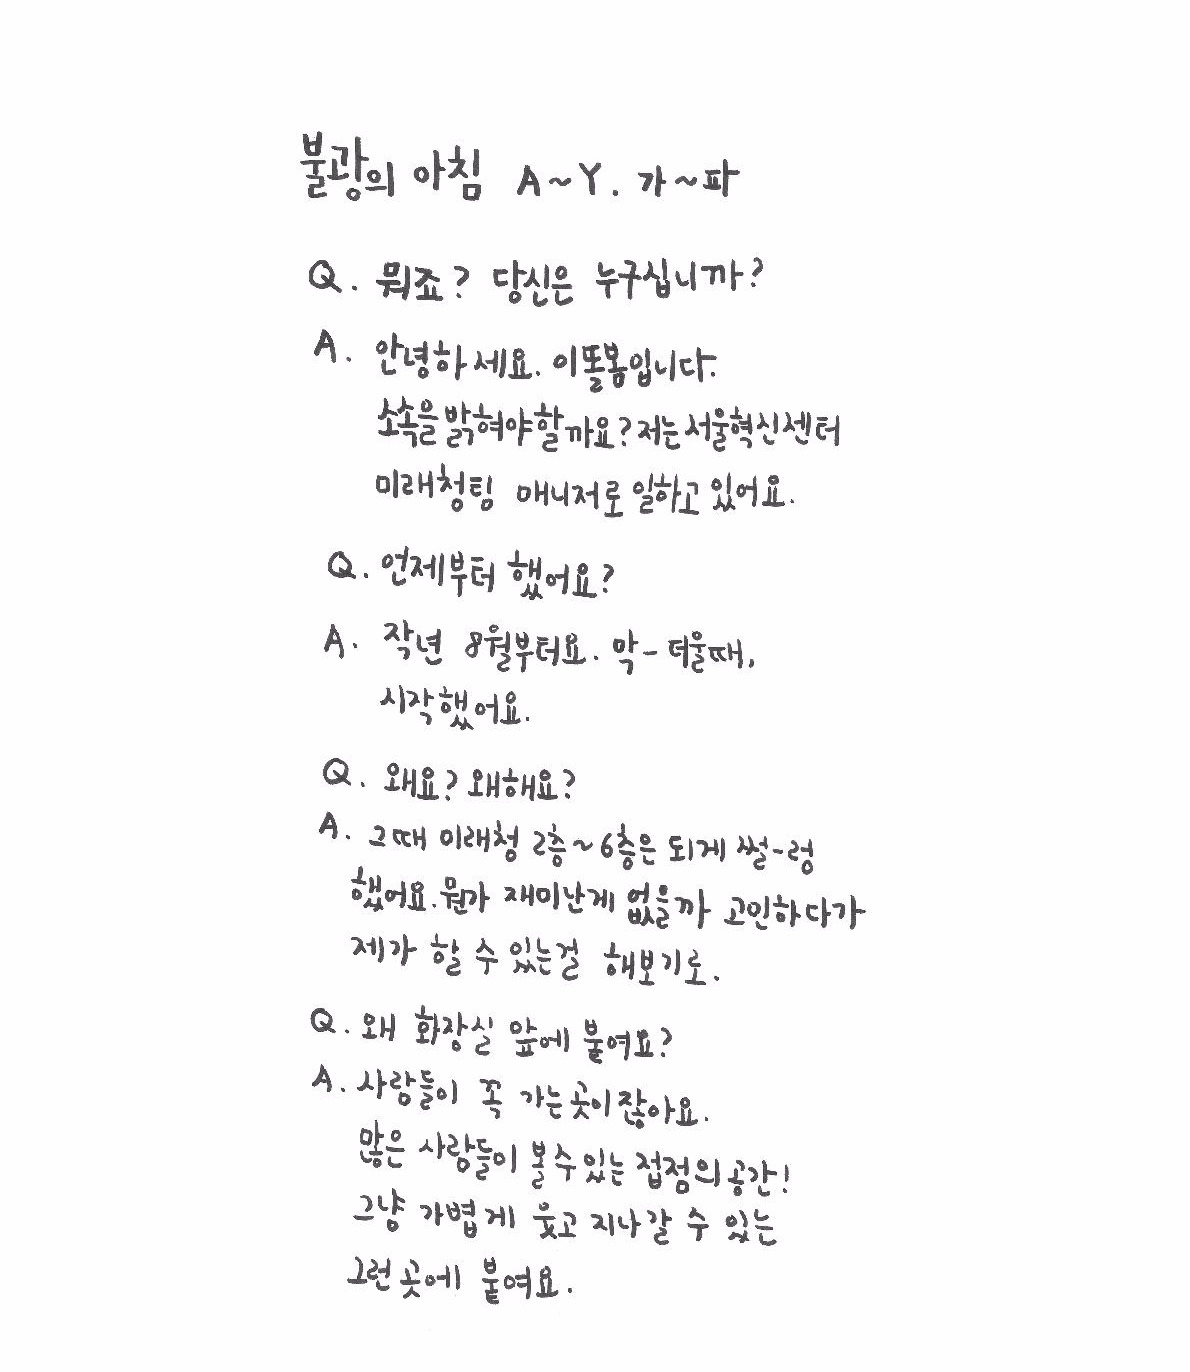 불광의 아침 A~Y. 가~파
Q. 뭐죠? 당신은 누구십니까?
A. 안녕하세요. 이똘봄입니다.
소속을 밝혀야할까요? 저는 서울혁신센터
미래청팀 매니저로 일하고 있어요.
Q. 언제부터 했어요?
A. 작년 8월부터요. 막- 더울때,
시작했어요.
Q. 왜요? 왜해요?
A. 그때 미래청 2층~6층은 되게 썰-렁
했어요. 뭔가 재미난게 없을까 고민하다가
제가 할 수 있는걸 해보기로.
Q. 왜 화장실 앞에 붙여요?
A. 사람들이 꼭 가는 곳이잖아요.
많은 사람들이 볼수있는 접점의 공간!
그냥 가볍게 웃고 지나갈 수 있는
그런 곳에 붙여요.